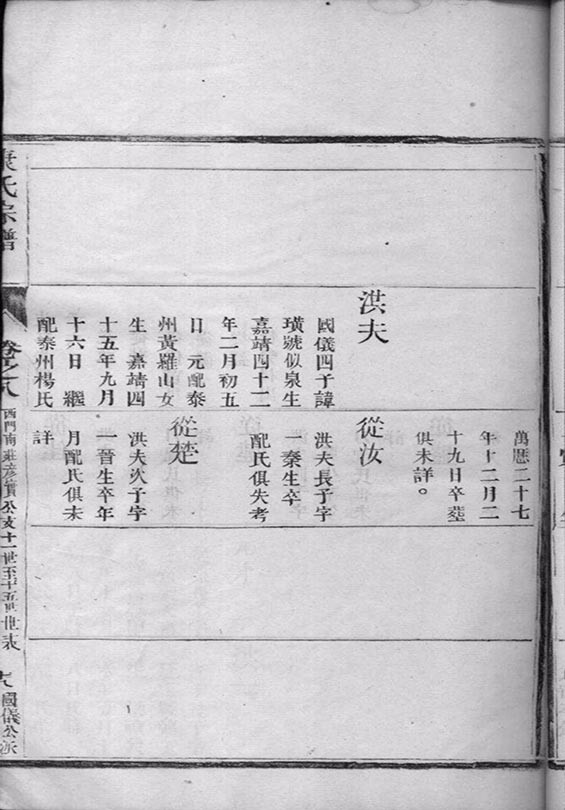 萬曆二十七
年十二月二
十九日卒塟
俱未詳。
洪夫
國儀四子諱
璜號似泉生
嘉靖四十二
年二月初五
日 元配泰
州黃羅山女
生 嘉靖四
十五年九月
十六日 繼
配泰州楊氏
從汝
洪夫長子字
一泰生卒
配氏俱失考
從楚
洪夫次子字
一晉生卒年
月配氏俱未
詳
康氏宗譜
卷之八
西門南莊彥賓公支十一世至十五世世表
國儀公派